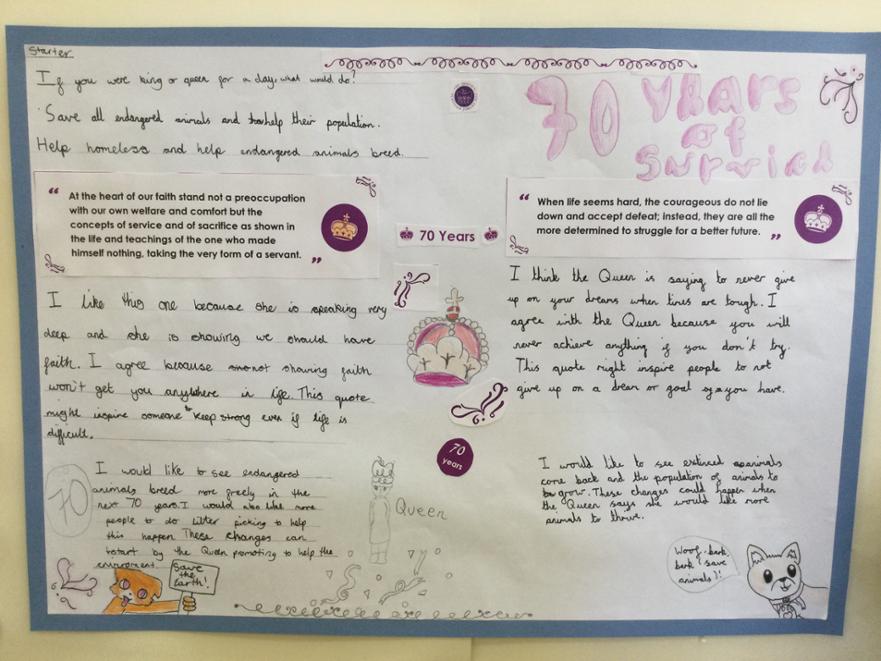 Starter
If you were king or queen for a day, what would do?
Save all endangered animals and help their population.
Help homeless and help endangered animals breed.
70 Years
of
Survice
“ At the heart of our faith stand not a preoccupation
with our own welfare and comfort but the
concepts of service and of sacrifice as shown in
the life and teachings of the one who made
himself nothing, taking the very form of a servant. ”
70 Years
“ When life seems hard, the courageous do not lie
down and accept defeat; instead, they are all the
more determined to struggle for a better future. ”
I like this one because she is speaking very
deep and she is showing we should have
faith. I agree because not showing faith
won't get you anywhere in life. This quote
might inspire someone to keep strong even if life is
difficult.
I think the Queen is saying to never give
up on your dreams when times are tough. I
agree with the Queen because you will
never achieve anything if you don't try.
This quote might inspire people to not
give up on a dream or goal you have.
70
years
70
I would like to see endangered
animals breed more freely in the
next 70 years. I would also like more
people to do litter picking to help
this happen These changes can
start by the Queen promoting to help the
enviroment.
Save
the
Earth!
Queen
I would like to see extinced animals
come back and the population of animals to
grow. These changes could happen when
the Queen says she would like more
animals to thrive.
Woof, bark,
bark! (save
animals)!